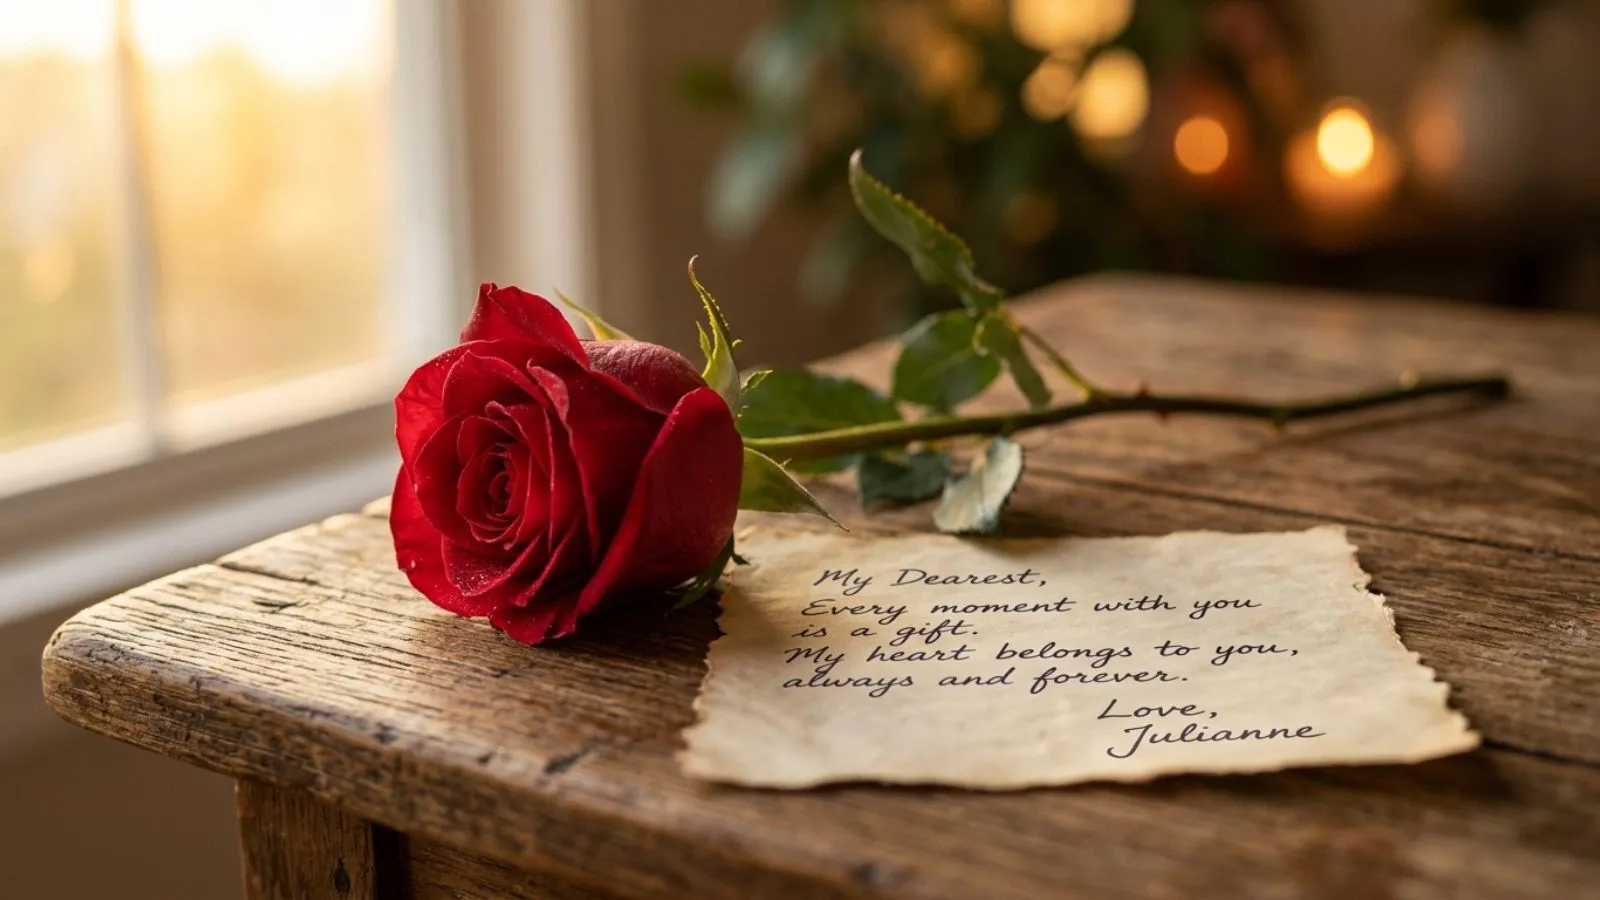 My Dearest,
Every moment with you
is a gift.
My heart belongs to you,
always and forever.
Love,
Julianne